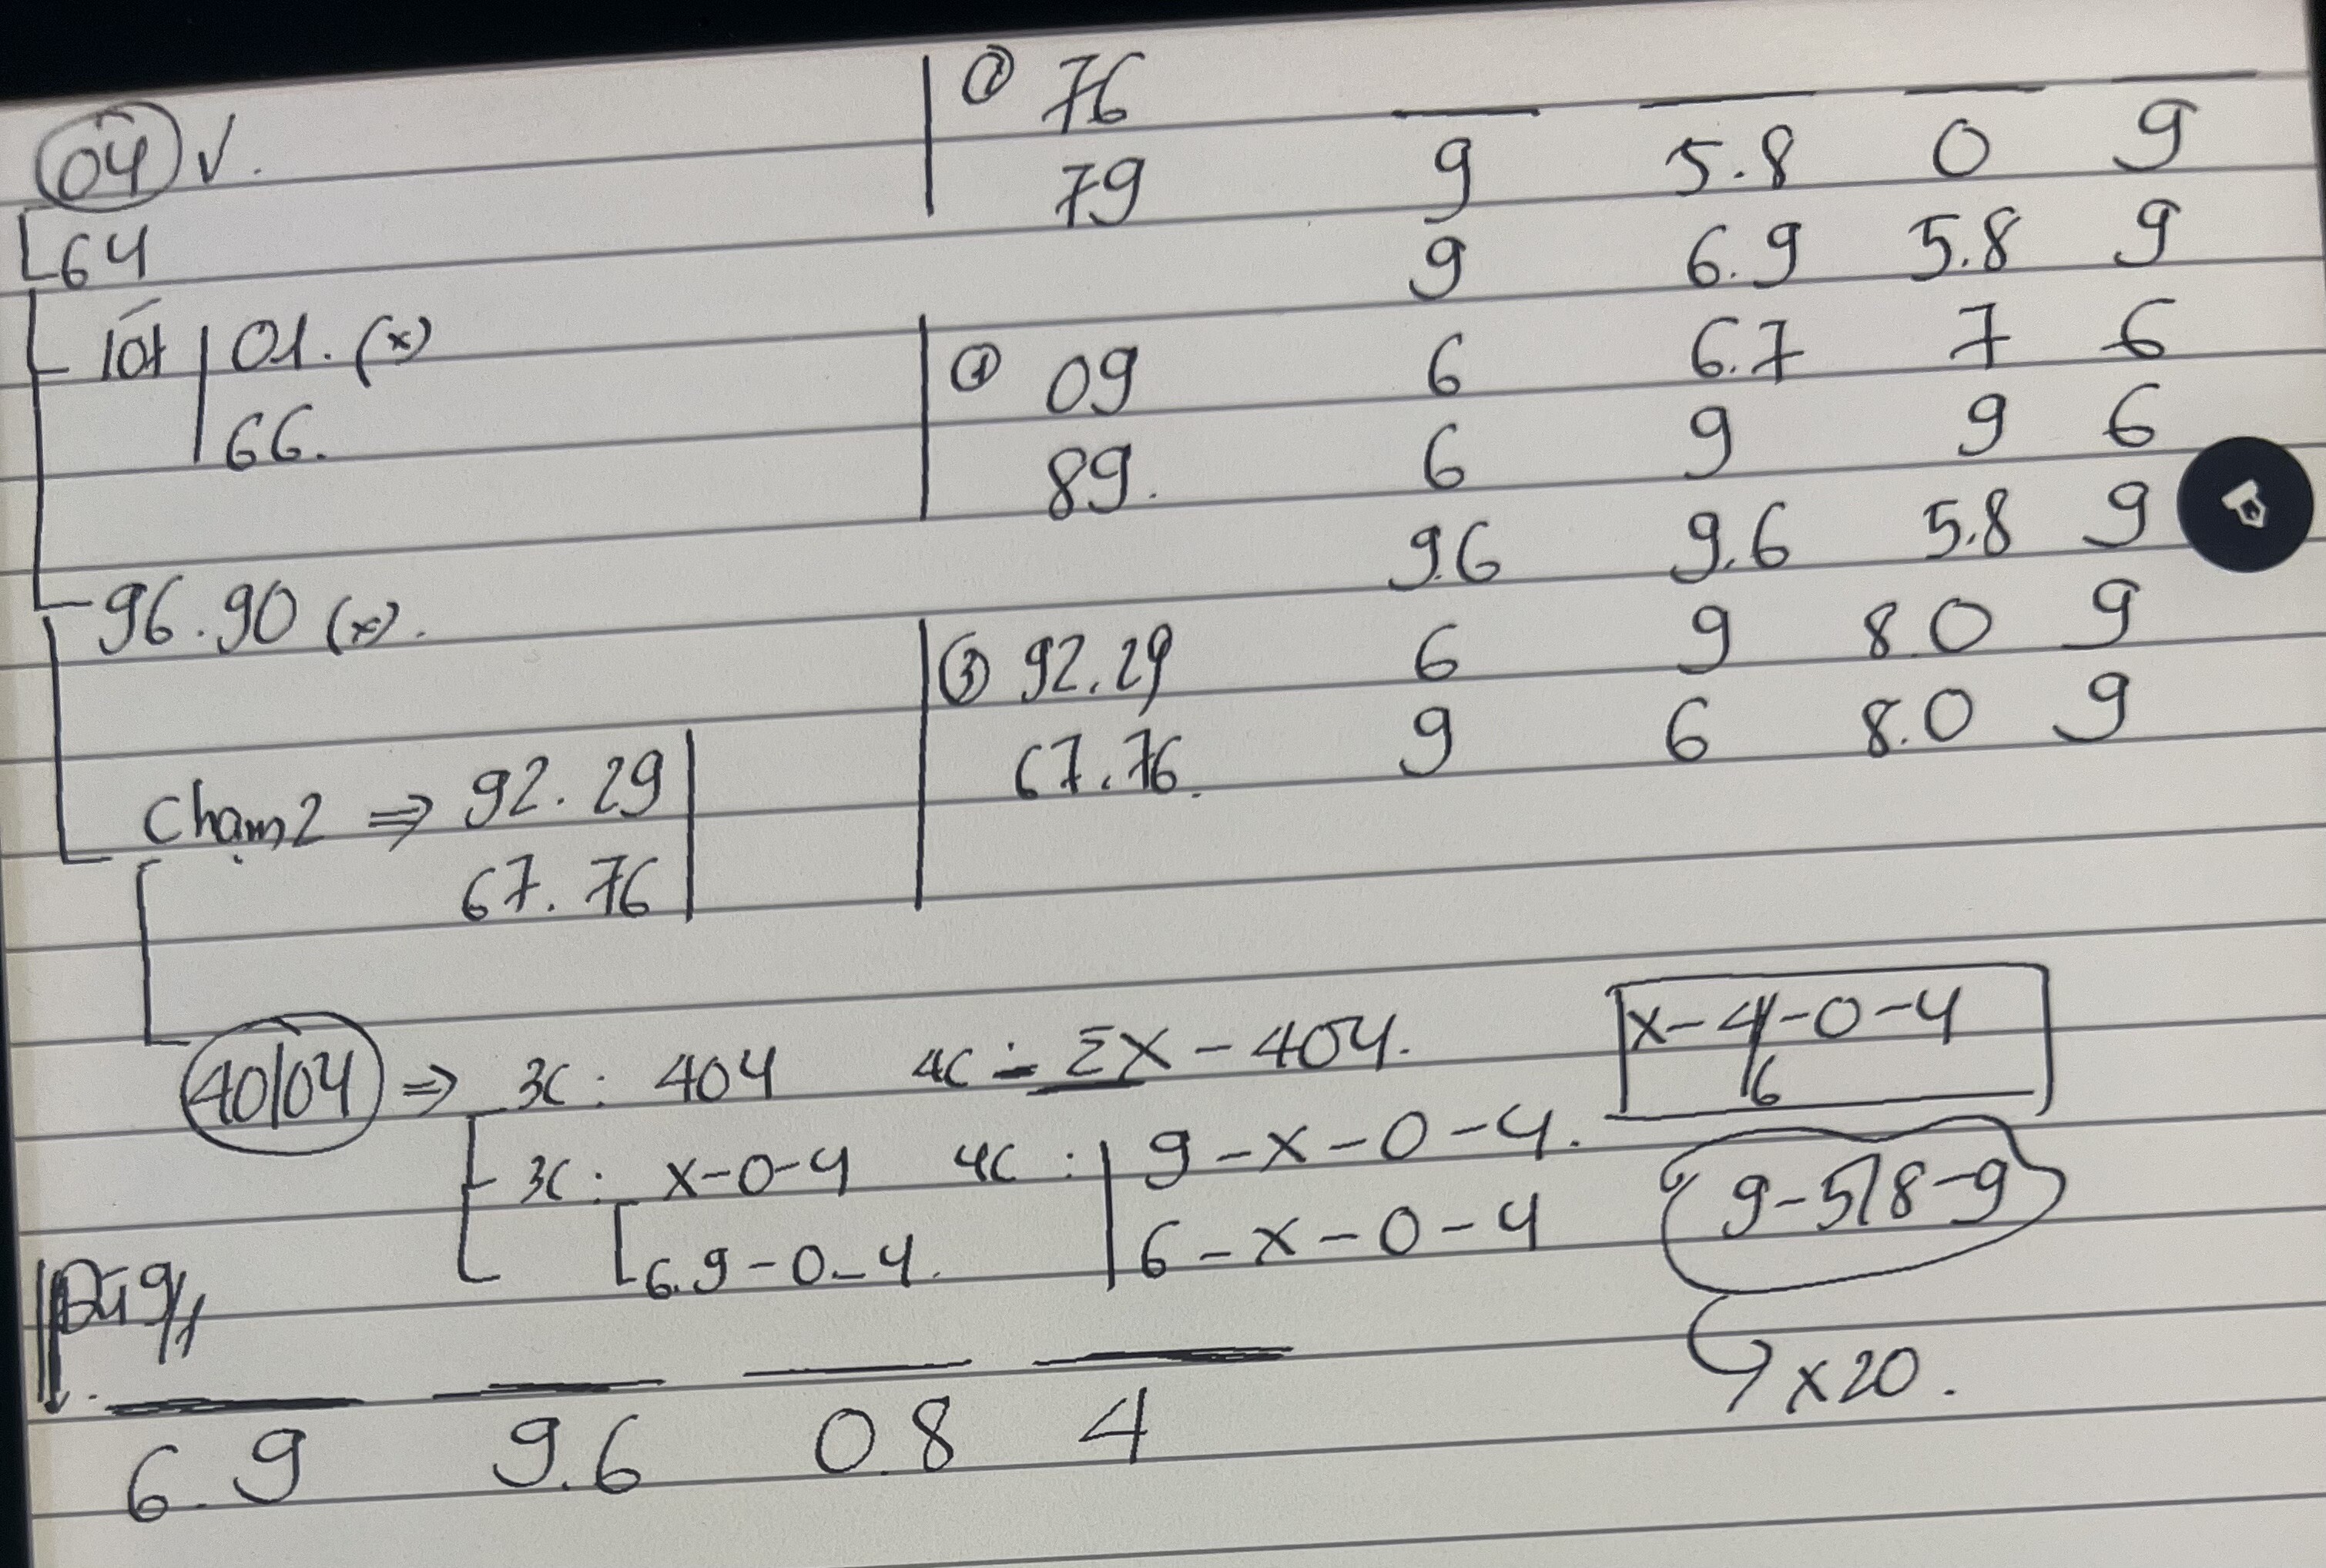 04 √.
64
lót | 01. (x)
66.
96.90 (x).
Chạm 2 ⇒ 92.29
67.76
① 76
79
① 09
89.
③ 92.29
67.76.
9 5.8 0 9
9 6.9 5.8 9
6 6.7 7 6
6 9 9 6
9.6 9.6 5.8 9
6 9 8.0 9
9 6 8.0 9
40/04 ⇒ 3C: 404 4C: ΣX - 404.
3C: x-0-4 4C: 9-x-0-4.
6.9-0-4. 6-x-0-4
x-4/6-0-4
9-5/8-9
x20.
9/1
6.9 9.6 0.8 4